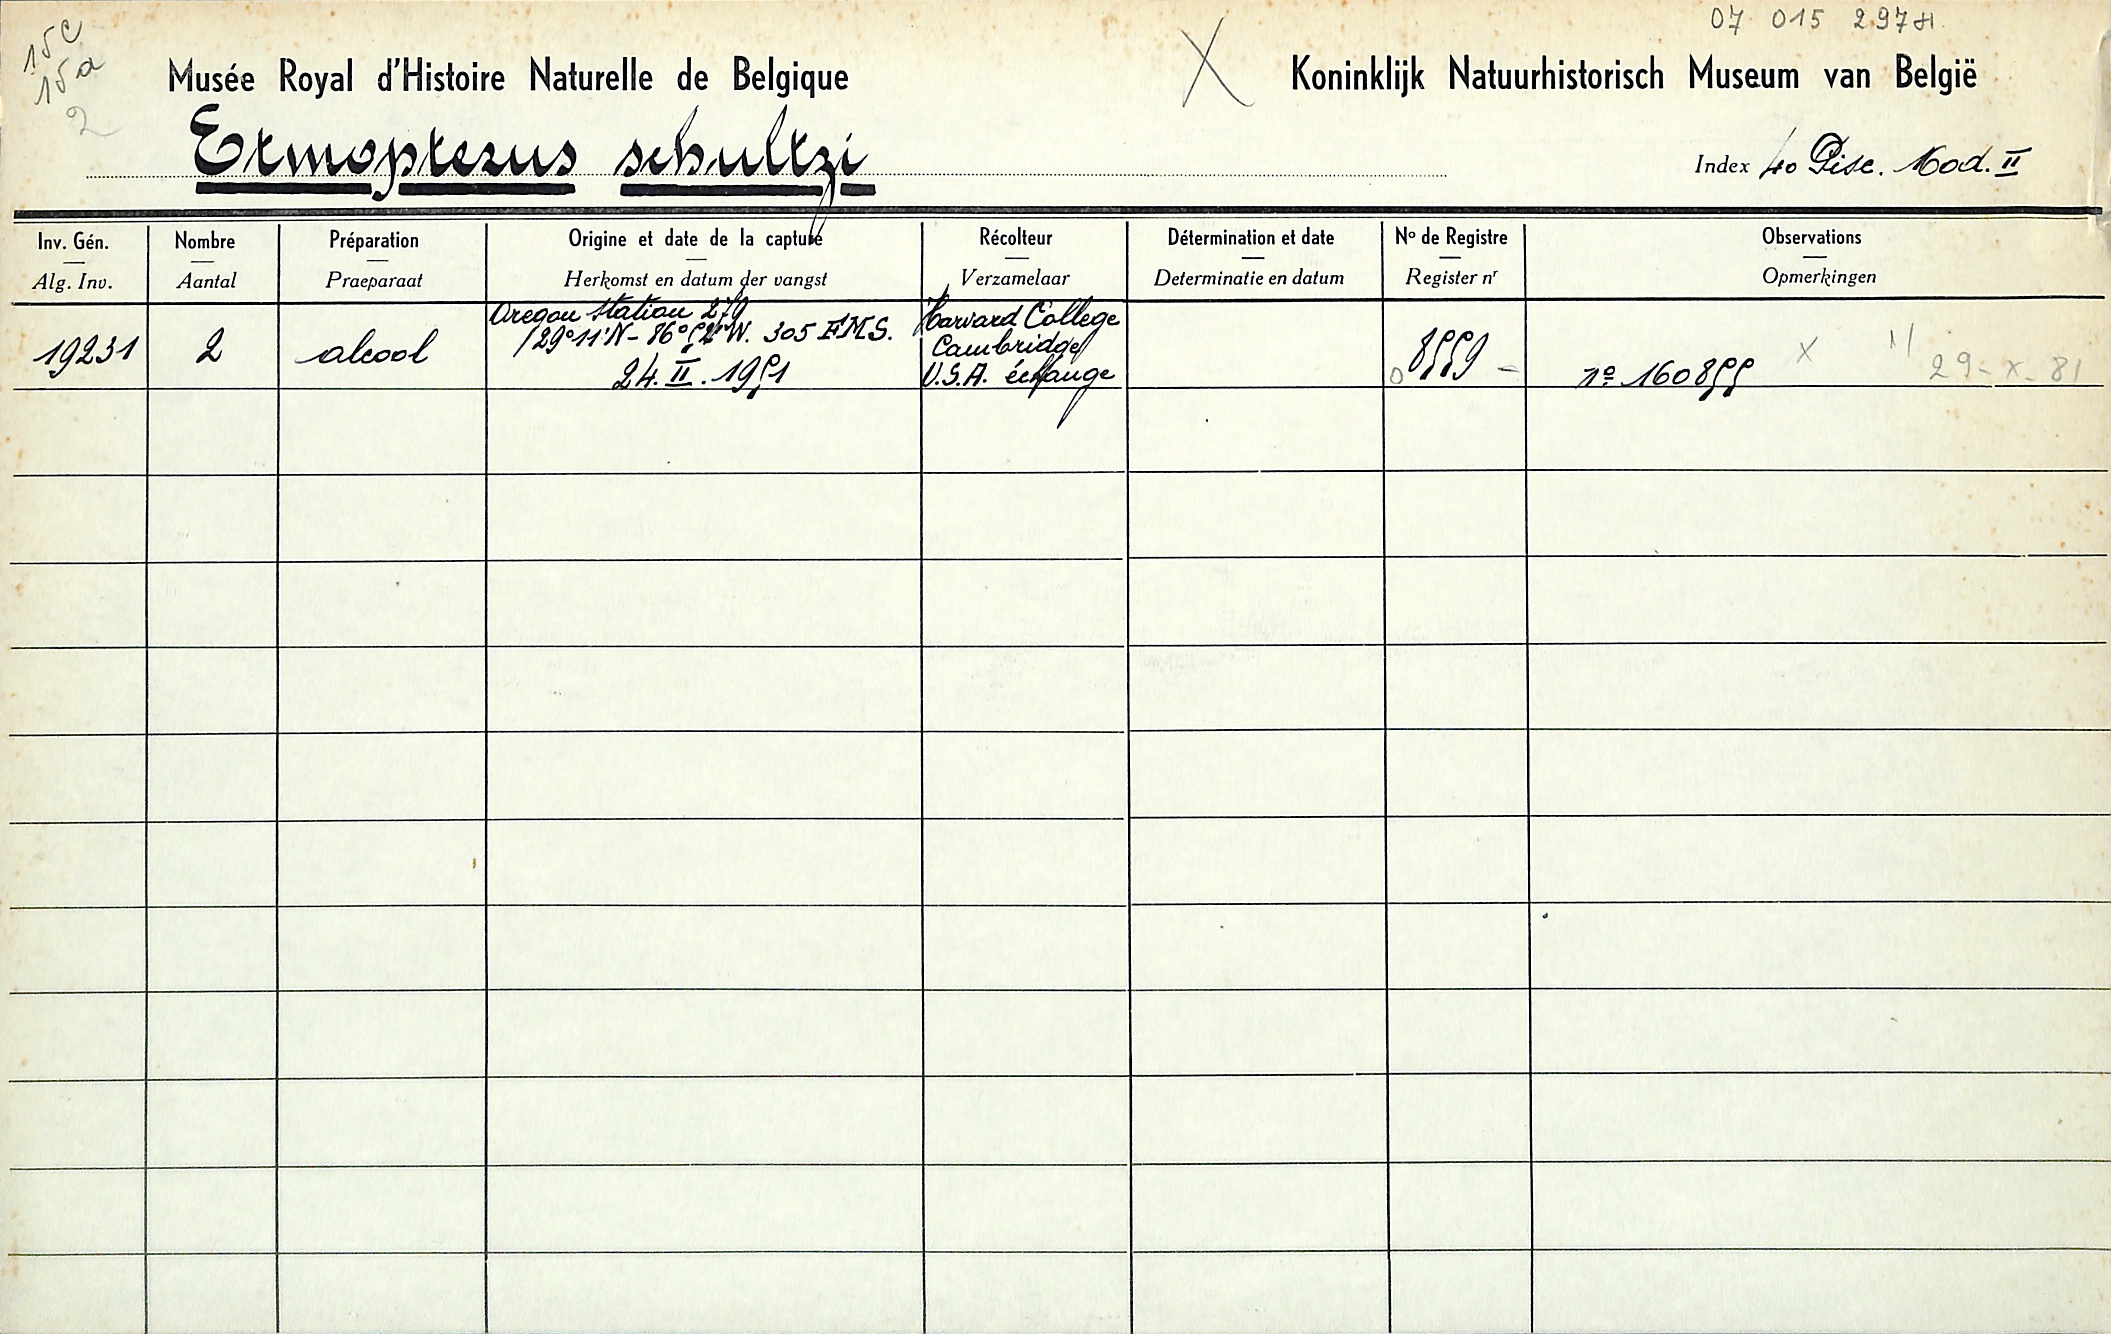 15c
15a
2
07 015 297H
Musée Royal d'Histoire Naturelle de Belgique
X
Koninklijk Natuurhistorisch Museum van België
Etmopterus schultzi
Index 40 Pisc. Mod. II
Inv. Gén. Nombre Préparation Origine et date de la capture Récolteur Détermination et date No de Registre Observations
Alg. Inv. Aantal Praeparaat Herkomst en datum der vangst Verzamelaar Determinatie en datum Register nr Opmerkingen
19231
2
alcool
Oregon Station 279
29°11'N - 86° W. 305 FMS.
24. II. 1951
Harvard College
Cambridge
U.S.A. échange
8559
nº 160855 X
29-X-81